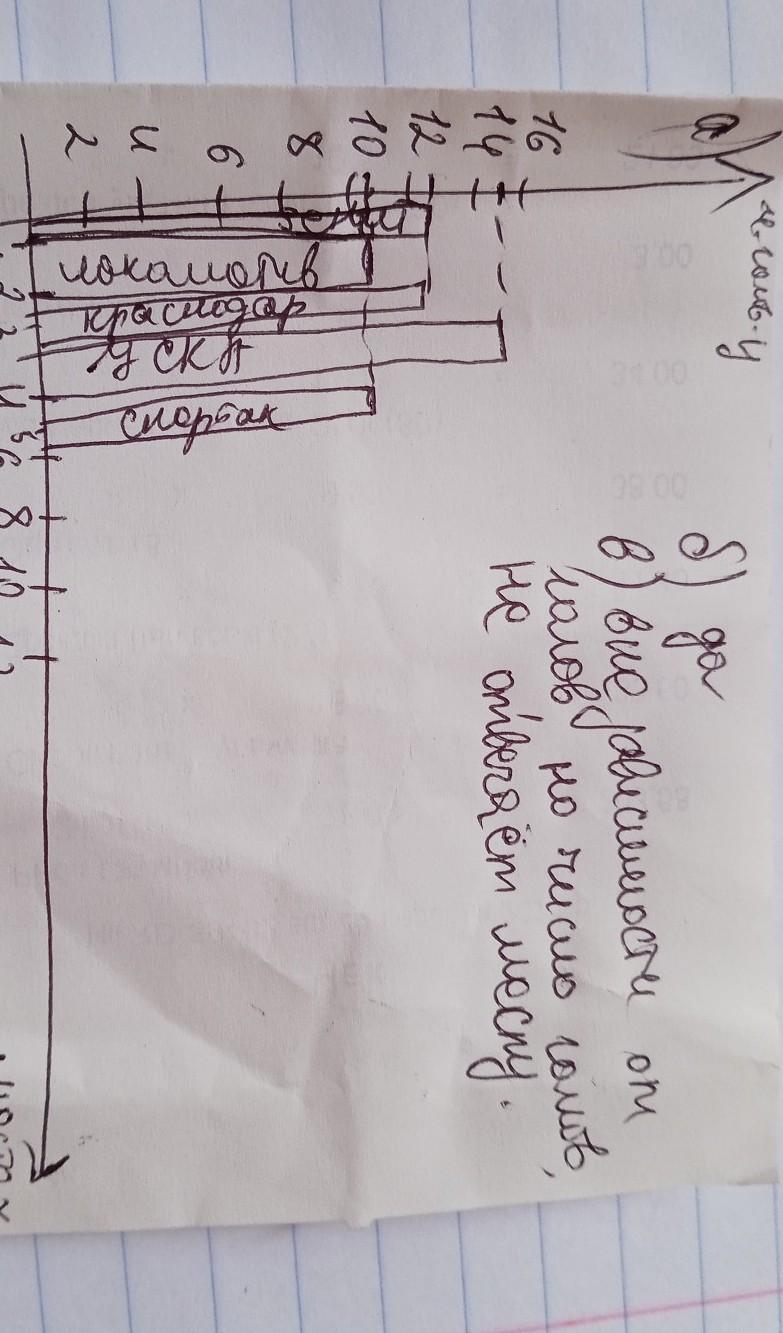 а)
ч. голов. у
16
14
12
10
8
6
4
2
Зенит
локомотив
краснодар
ЦСКА
спартак
2
3
4
5
6
8
10
12
места х
б) да
в) вне зависимости от
голов, но число голов,
не отвечает месту.